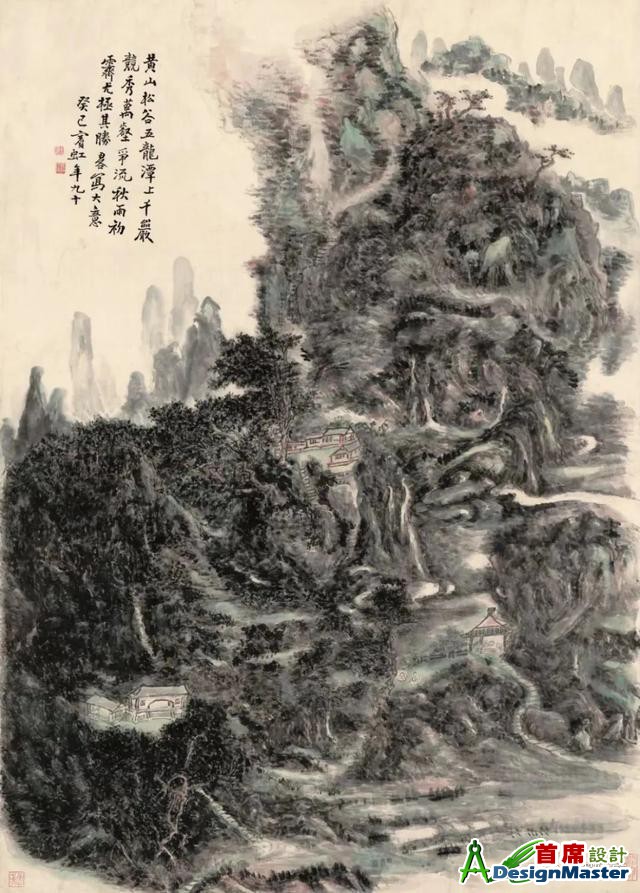 黄山松谷五龍潭上千巖
競秀萬壑爭流秋雨初
霽尤極其勝畧寫大意
癸巳賓虹年九十
首席設計
ADesignMaster